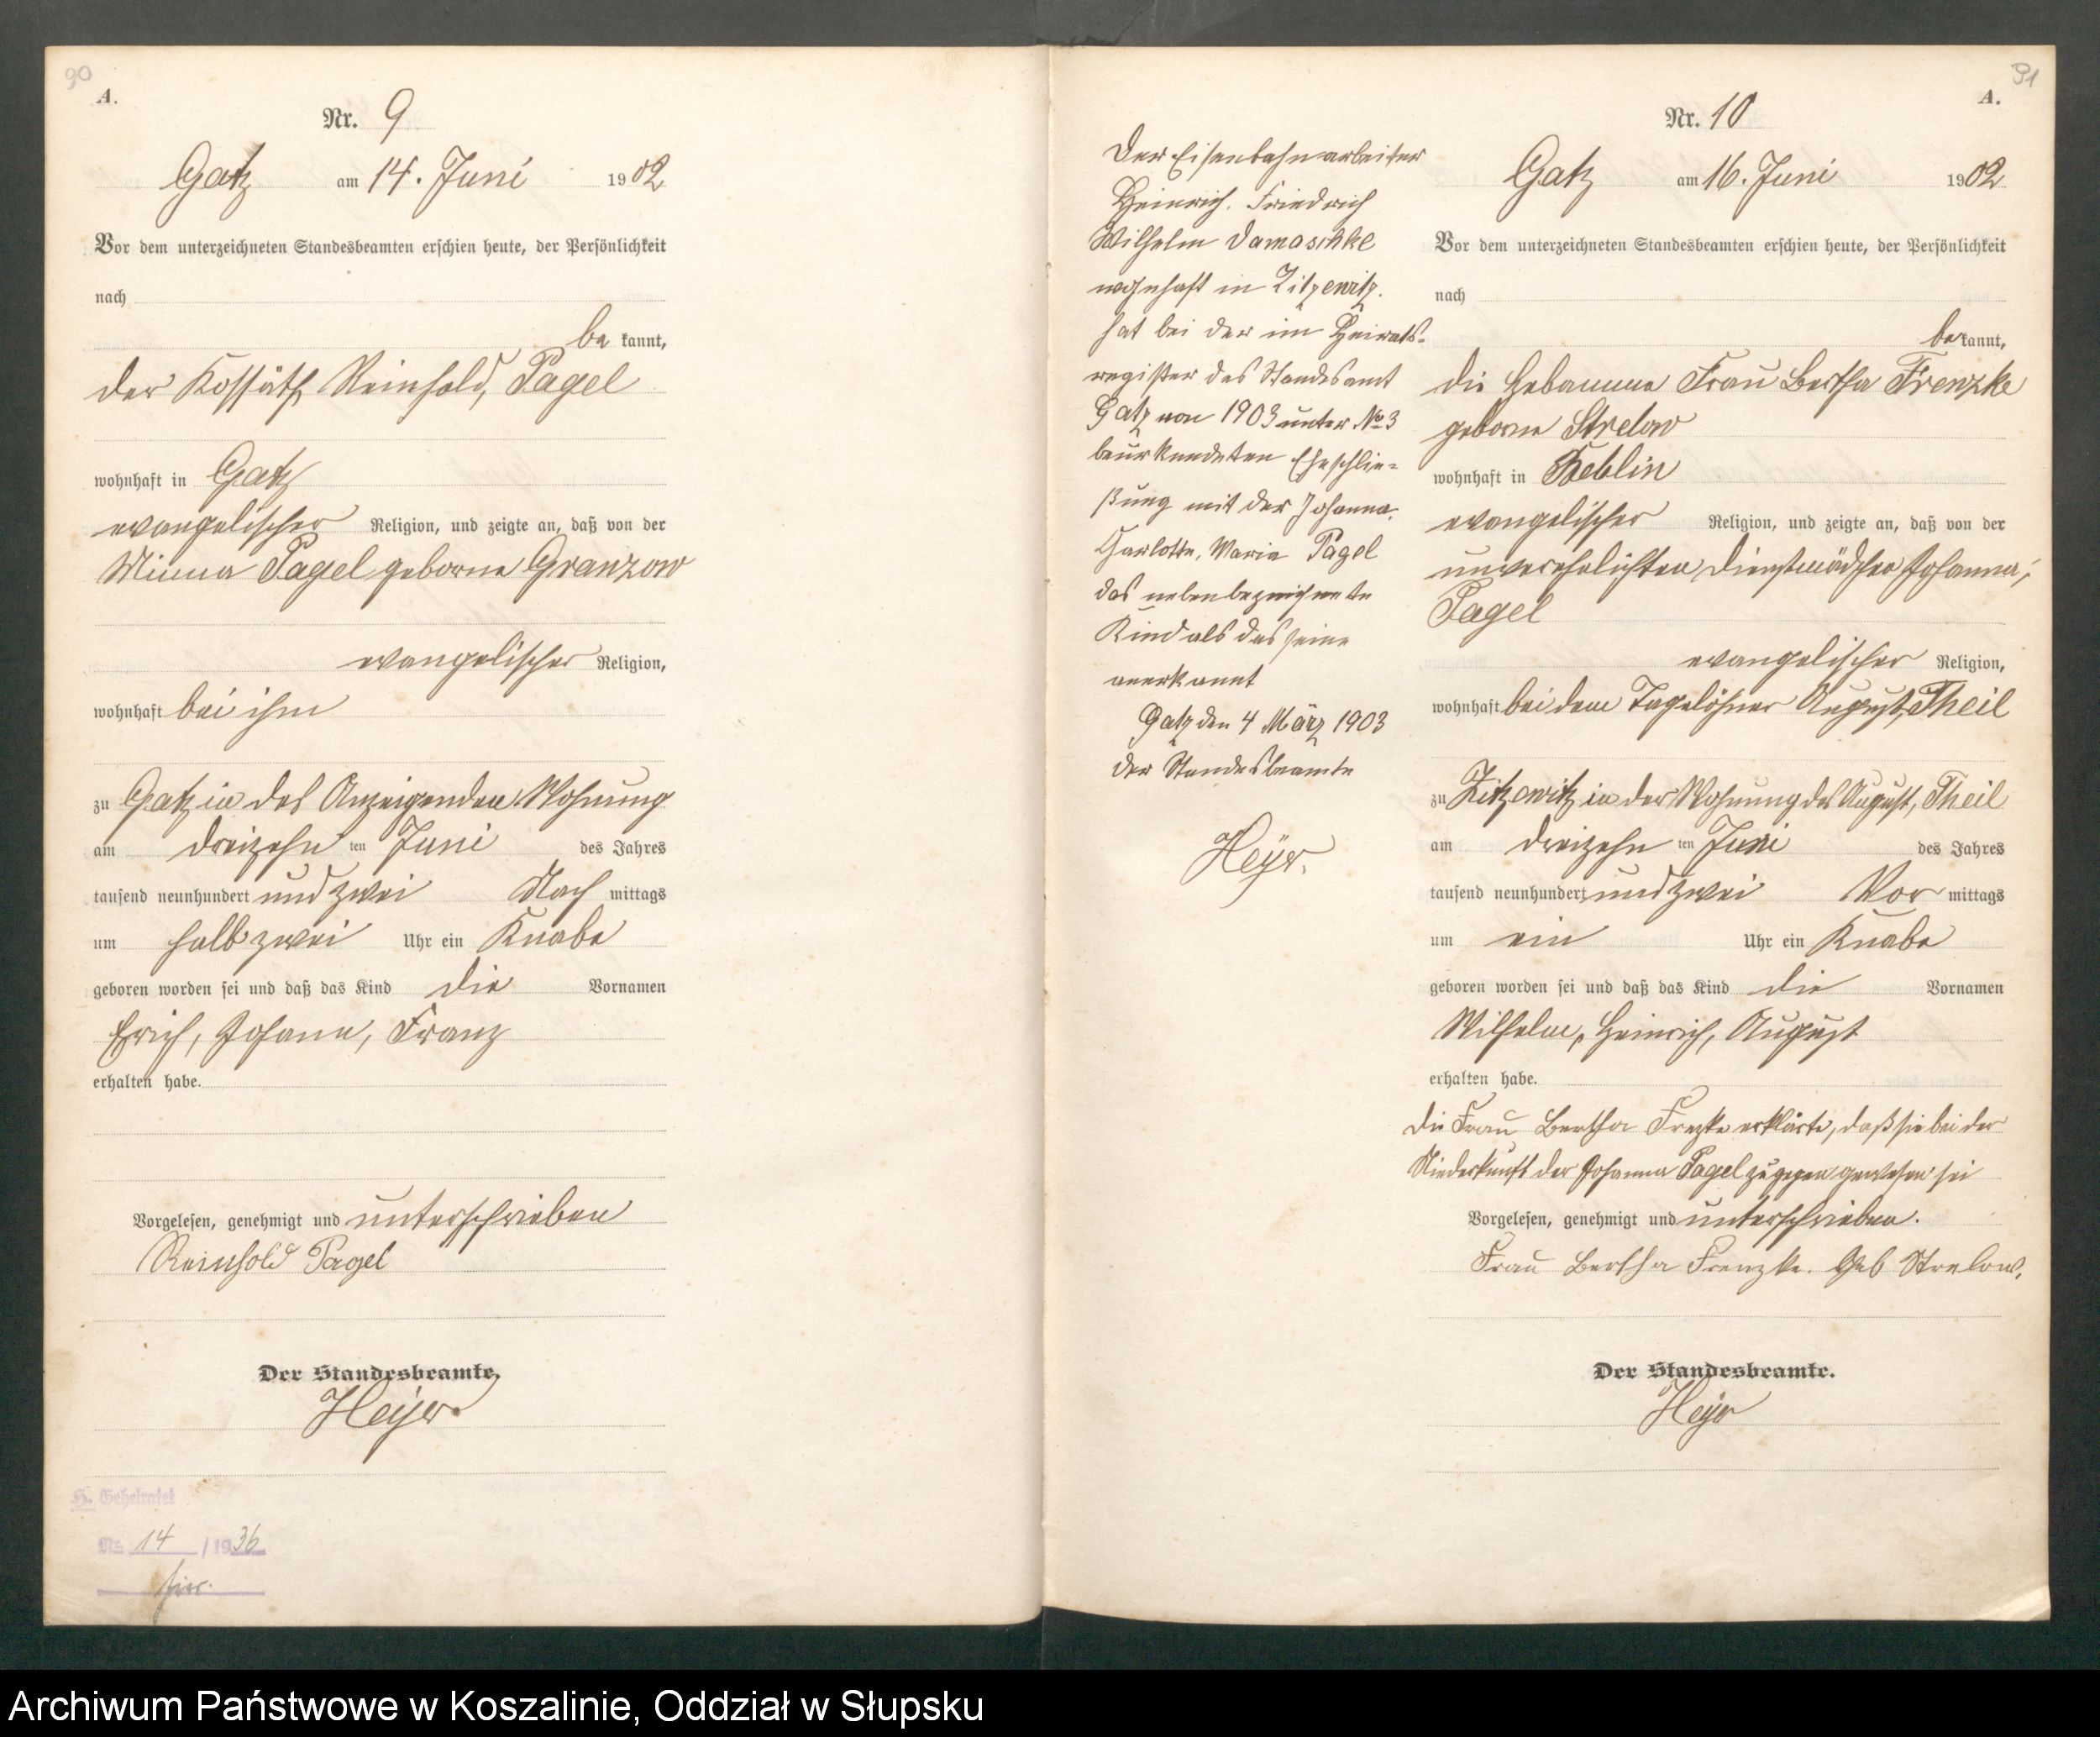 90
A.
Nr. 9
Gatz am 14. Juni 1902
Vor dem unterzeichneten Standesbeamten erschien heute, der Persönlichkeit
nach
be kannt,
der Kossäth Reinhold, Pagel
wohnhaft in Gatz
evangelischer Religion, und zeigte an, daß von der
Minna Pagel geborne Granzow
evangelischer Religion,
wohnhaft bei ihm
zu Gatz in des Anzeigenden Wohnung
am dreizehn ten Juni des Jahres
tausend neunhundert und zwei Nach mittags
um halb zwei Uhr ein Knabe
geboren worden sei und daß das Kind die Vornamen
Erich, Johann, Franz
erhalten habe.
Vorgelesen, genehmigt und unterschrieben
Reinhold Pagel
Der Standesbeamte.
Heyer
H. Geheiratet
Nr. 14 / 1936
91
A.
Nr. 10
Der Eisenbahnarbeiter
Heinrich. Friedrich
Wilhelm Damaschke
wohnhaft in Zitzewitz.
hat bei der im Heirats-
register des Standesamt
Gatz von 1903 unter No 3
beurkundeten Eheschlie-
ßung mit der Johanna,
Charlotte, Maria Pagel
das nebenbezeichnete
Kind als das seine
anerkannt
Gatz den 4 März 1903
der Standesbeamte
Heyer.
Gatz am 16. Juni 1902
Vor dem unterzeichneten Standesbeamten erschien heute, der Persönlichkeit
nach
be kannt,
die Hebamme Frau Bertha Frenzke
geborne Strelow
wohnhaft in Beblin
evangelischer Religion, und zeigte an, daß von der
unverehelichten Dienstmädchen Johanna,
Pagel
evangelischer Religion,
wohnhaft bei dem Tagelöhner August, Theil
zu Zitzewitz in der Wohnung des August, Theil
am dreizehn ten Juni des Jahres
tausend neunhundert und zwei Vor mittags
um ein Uhr ein Knabe
geboren worden sei und daß das Kind die Vornamen
Wilhelm, Heinrich, August
erhalten habe.
Die Frau Bertha Frezke erklärte, daß sie bei der
Niederkunft der Johanna Pagel zugegen gewesen sei
Vorgelesen, genehmigt und unterschrieben.
Frau Bertha Frenzke. Geb Strelow.
Der Standesbeamte.
Heyer
Archiwum Państwowe w Koszalinie, Oddział w Słupsku